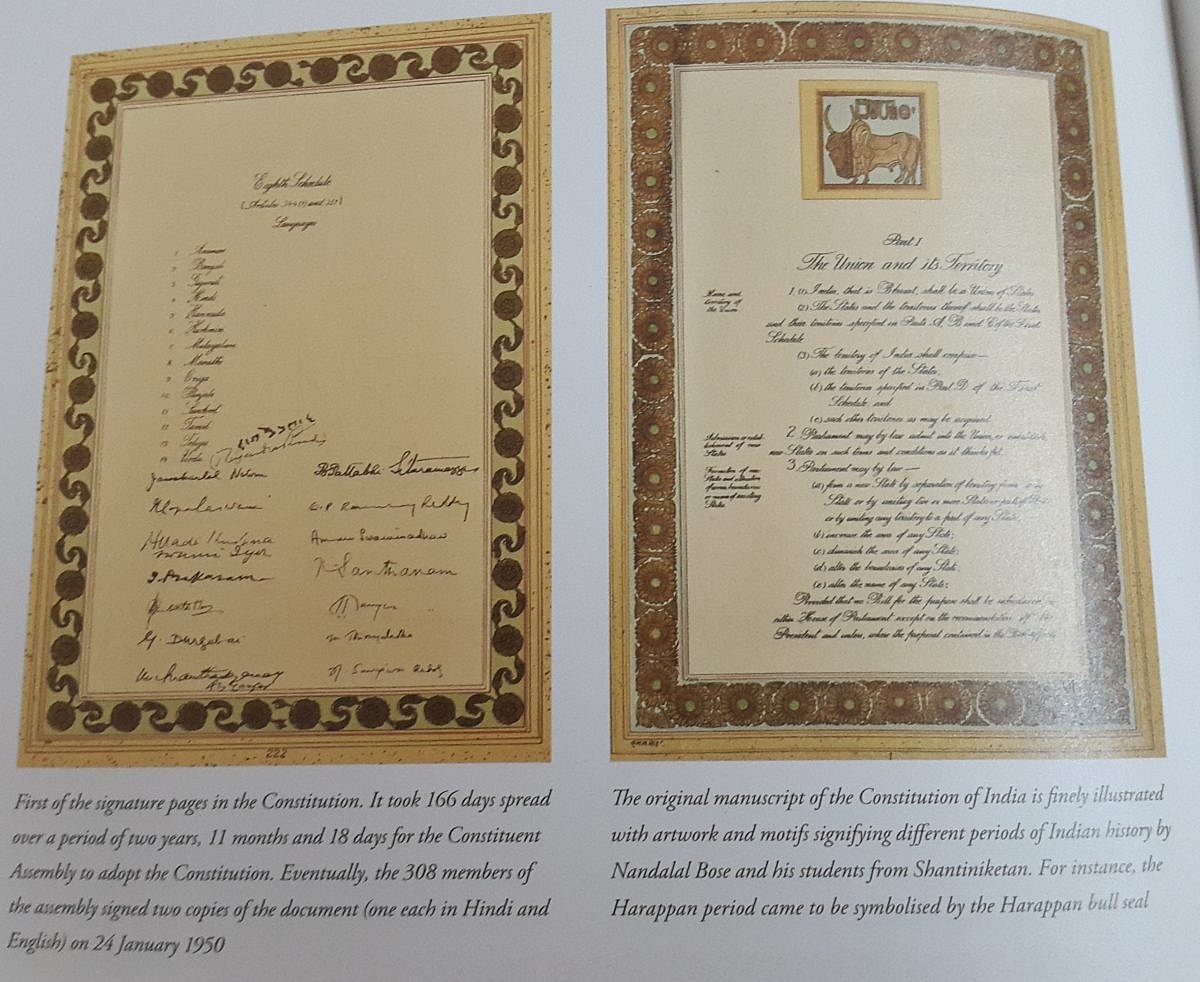 Eighth Schedule
[Articles 344(1) and 351]
Languages
1 Assamese
2 Bengali
3 Gujarati
4 Hindi
5 Kannada
6 Kashmiri
7 Malayalam
8 Marathi
9 Oriya
10 Punjabi
11 Sanskrit
12 Tamil
13 Telugu
14 Urdu
Jawaharlal Nehru
B Pattabhi Sitaramayya
Alladi Krishna
swami Iyer
T. Prakasam
K Santhanam
G. Durgabai
222
First of the signature pages in the Constitution. It took 166 days spread
over a period of two years, 11 months and 18 days for the Constituent
Assembly to adopt the Constitution. Eventually, the 308 members of
the assembly signed two copies of the document (one each in Hindi and
English) on 24 January 1950
Part I
The Union and its Territory
Name and
territory of
the Union
1. (1) India, that is Bharat, shall be a Union of States
(2) The States and the territories thereof shall be the States
and their territories specified in Parts A, B and C of the First
Schedule
(3) The territory of India shall comprise—
(a) the territories of the States;
(b) the territories specified in Part D of the First
Schedule, and
(c) such other territories as may be acquired.
Admission or estab-
lishment of new
States
2. Parliament may by law admit into the Union, or establish,
new States on such terms and conditions as it thinks fit.
Formation of new
States and alteration
of areas, boundaries
or names of existing
States
3. Parliament may by law—
(a) form a new State by separation of territory from any
State or by uniting two or more States or parts of States
or by uniting any territory to a part of any State;
(b) increase the area of any State;
(c) diminish the area of any State;
(d) alter the boundaries of any State;
(e) alter the name of any State;
Provided that no Bill for the purpose shall be introduced in
either House of Parliament except on the recommendation of the
President and unless, where the proposal contained in the Bill affects
The original manuscript of the Constitution of India is finely illustrated
with artwork and motifs signifying different periods of Indian history by
Nandalal Bose and his students from Shantiniketan. For instance, the
Harappan period came to be symbolised by the Harappan bull seal